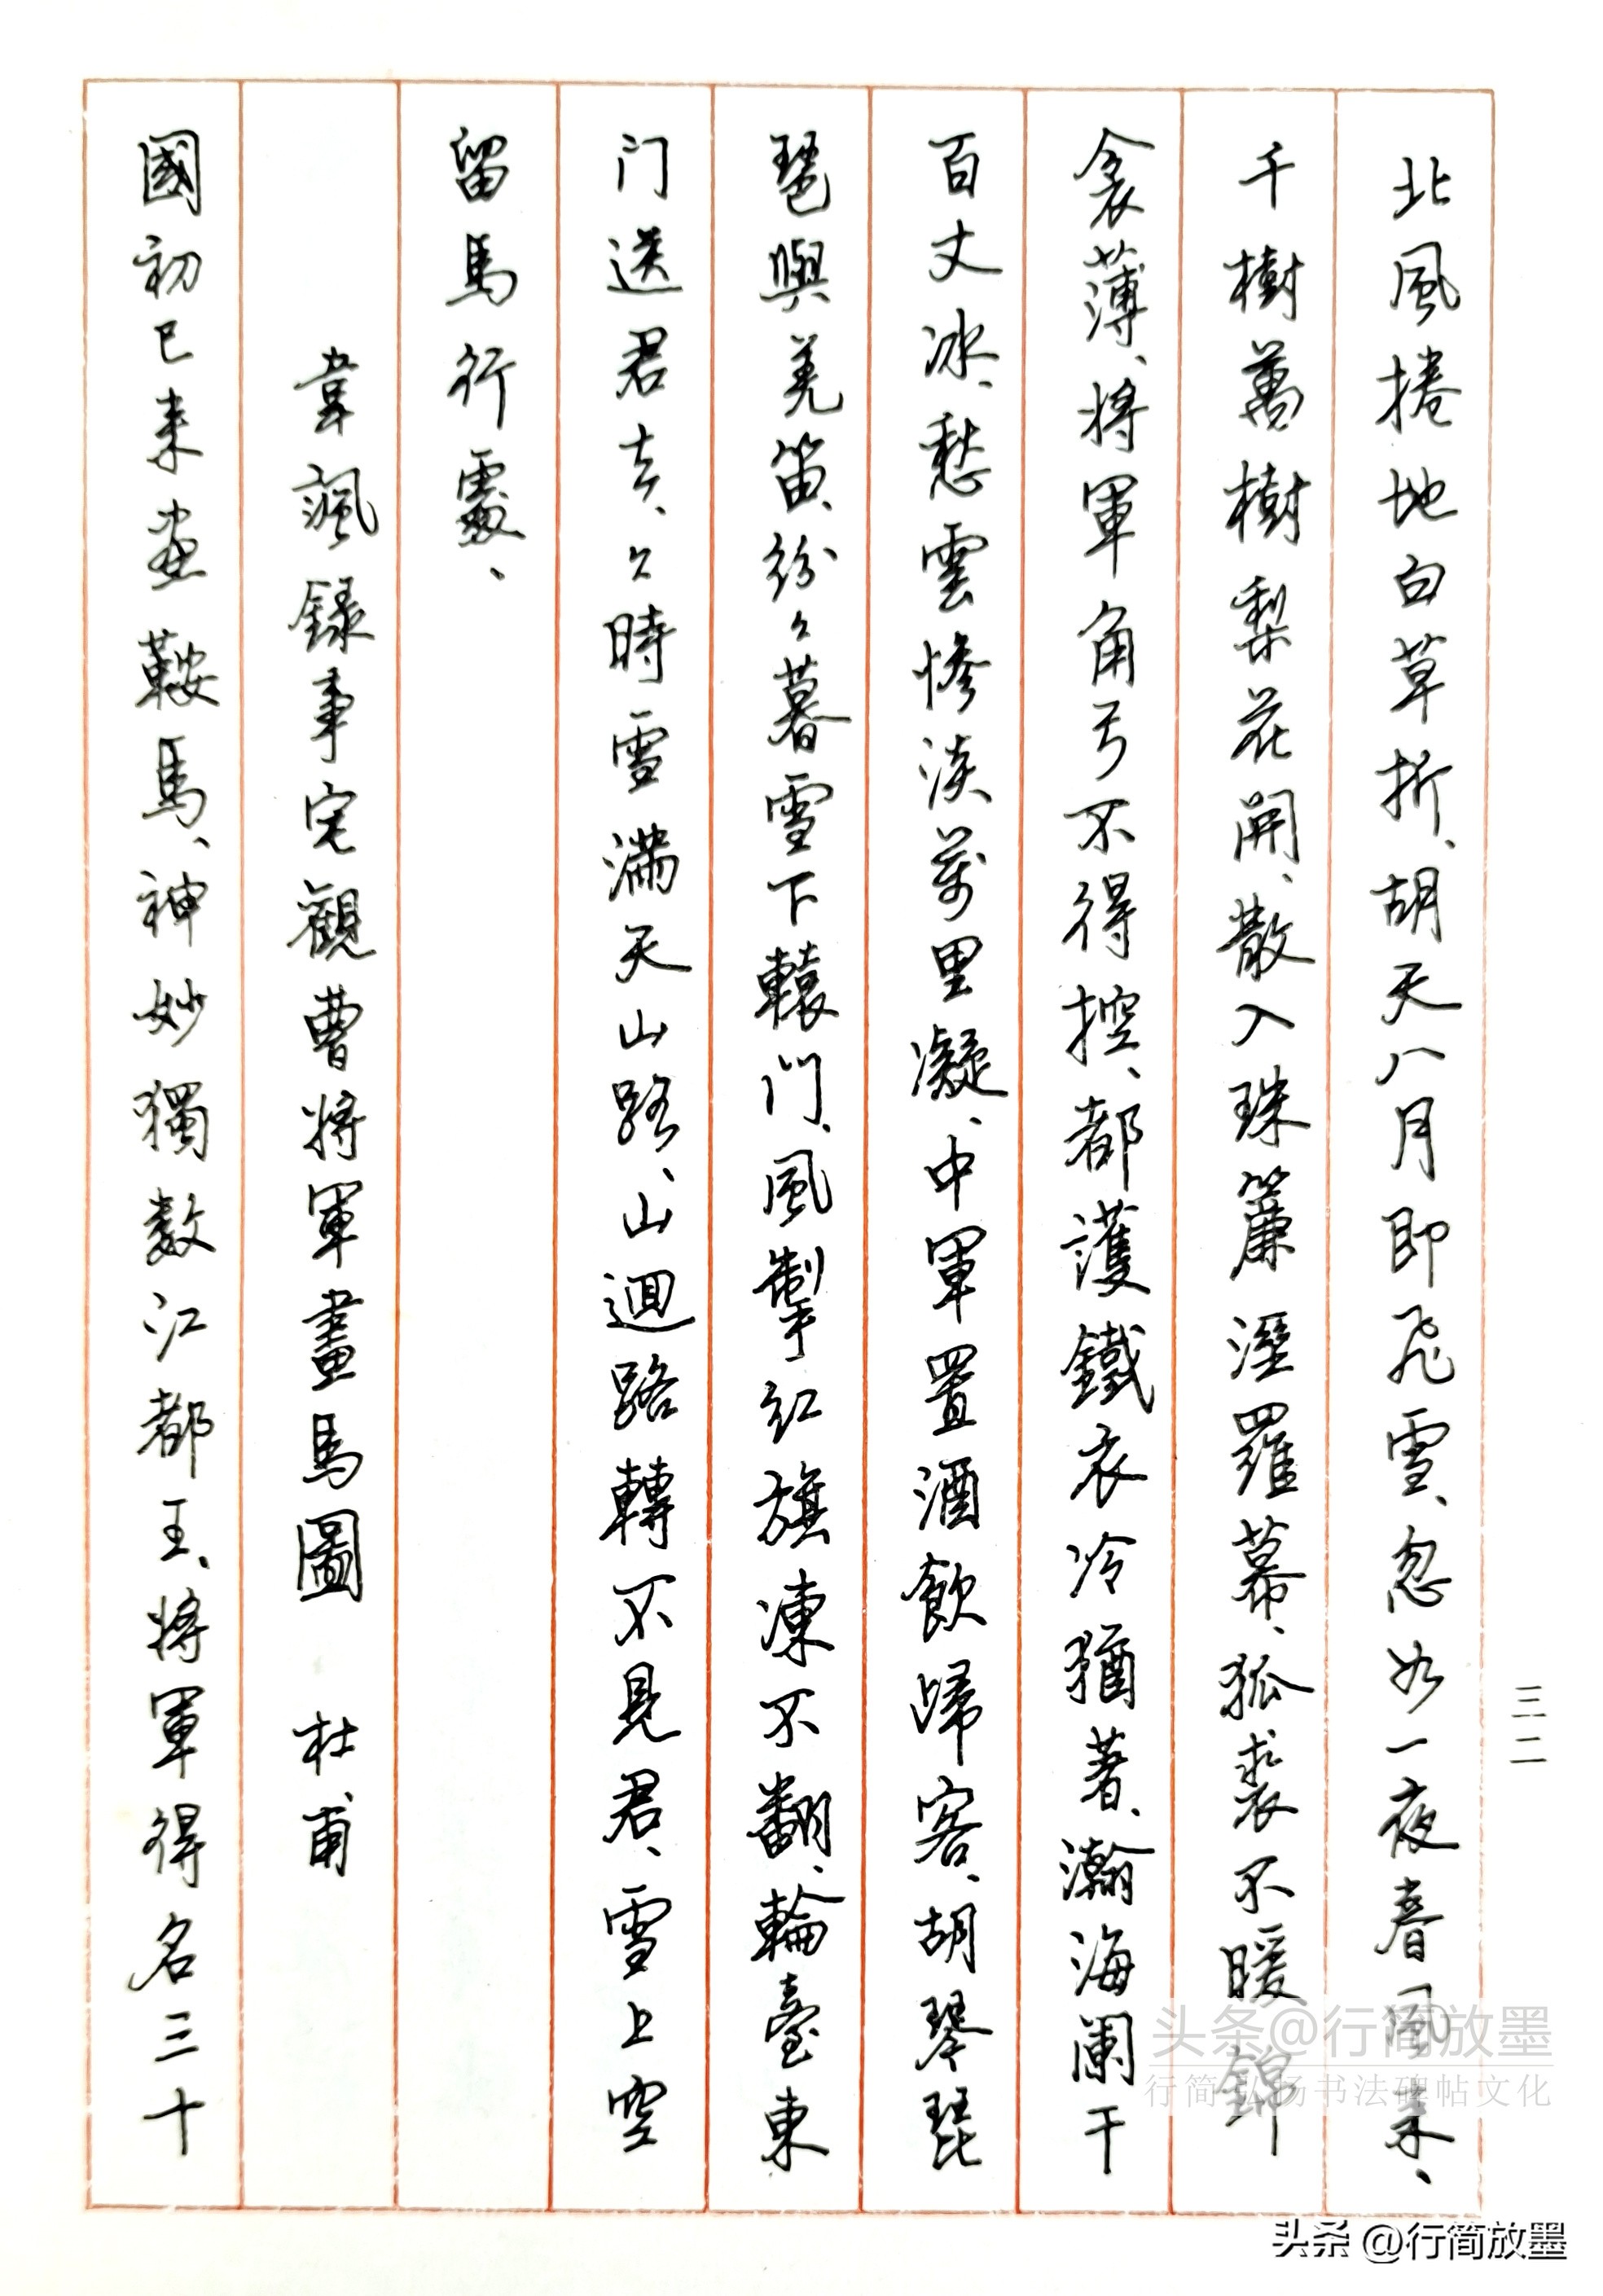 北風捲地白草折、胡天八月即飛雪、忽如一夜春風来、
千樹萬樹梨花開、散入珠簾溼羅幕、狐裘不暖錦
衾薄、將軍角弓不得控、都護鐵衣冷猶著、瀚海闌干
百丈冰、愁雲慘淡萬里凝、中軍置酒飲歸客、胡琴琵
琶與羌笛、紛々暮雪下轅門、風掣紅旗凍不翻、輪臺東
门送君去、々時雪滿天山路、山迴路轉不見君、雪上空
留馬行處、
韋諷錄事宅觀曹將軍畫馬圖 杜甫
國初已来畫鞍馬、神妙獨數江都王、將軍得名三十
三二
头条@行简放墨
行简弘扬书法碑帖文化
头条@行简放墨